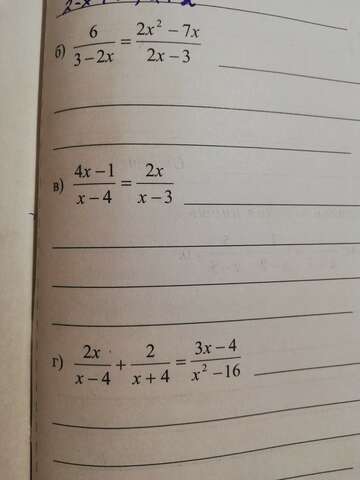 б) 6/(3−2x) = (2x² − 7x)/(2x − 3)
в) (4x − 1)/(x − 4) = 2x/(x − 3)
г) 2x/(x − 4) + 2/(x + 4) = (3x − 4)/(x² − 16)